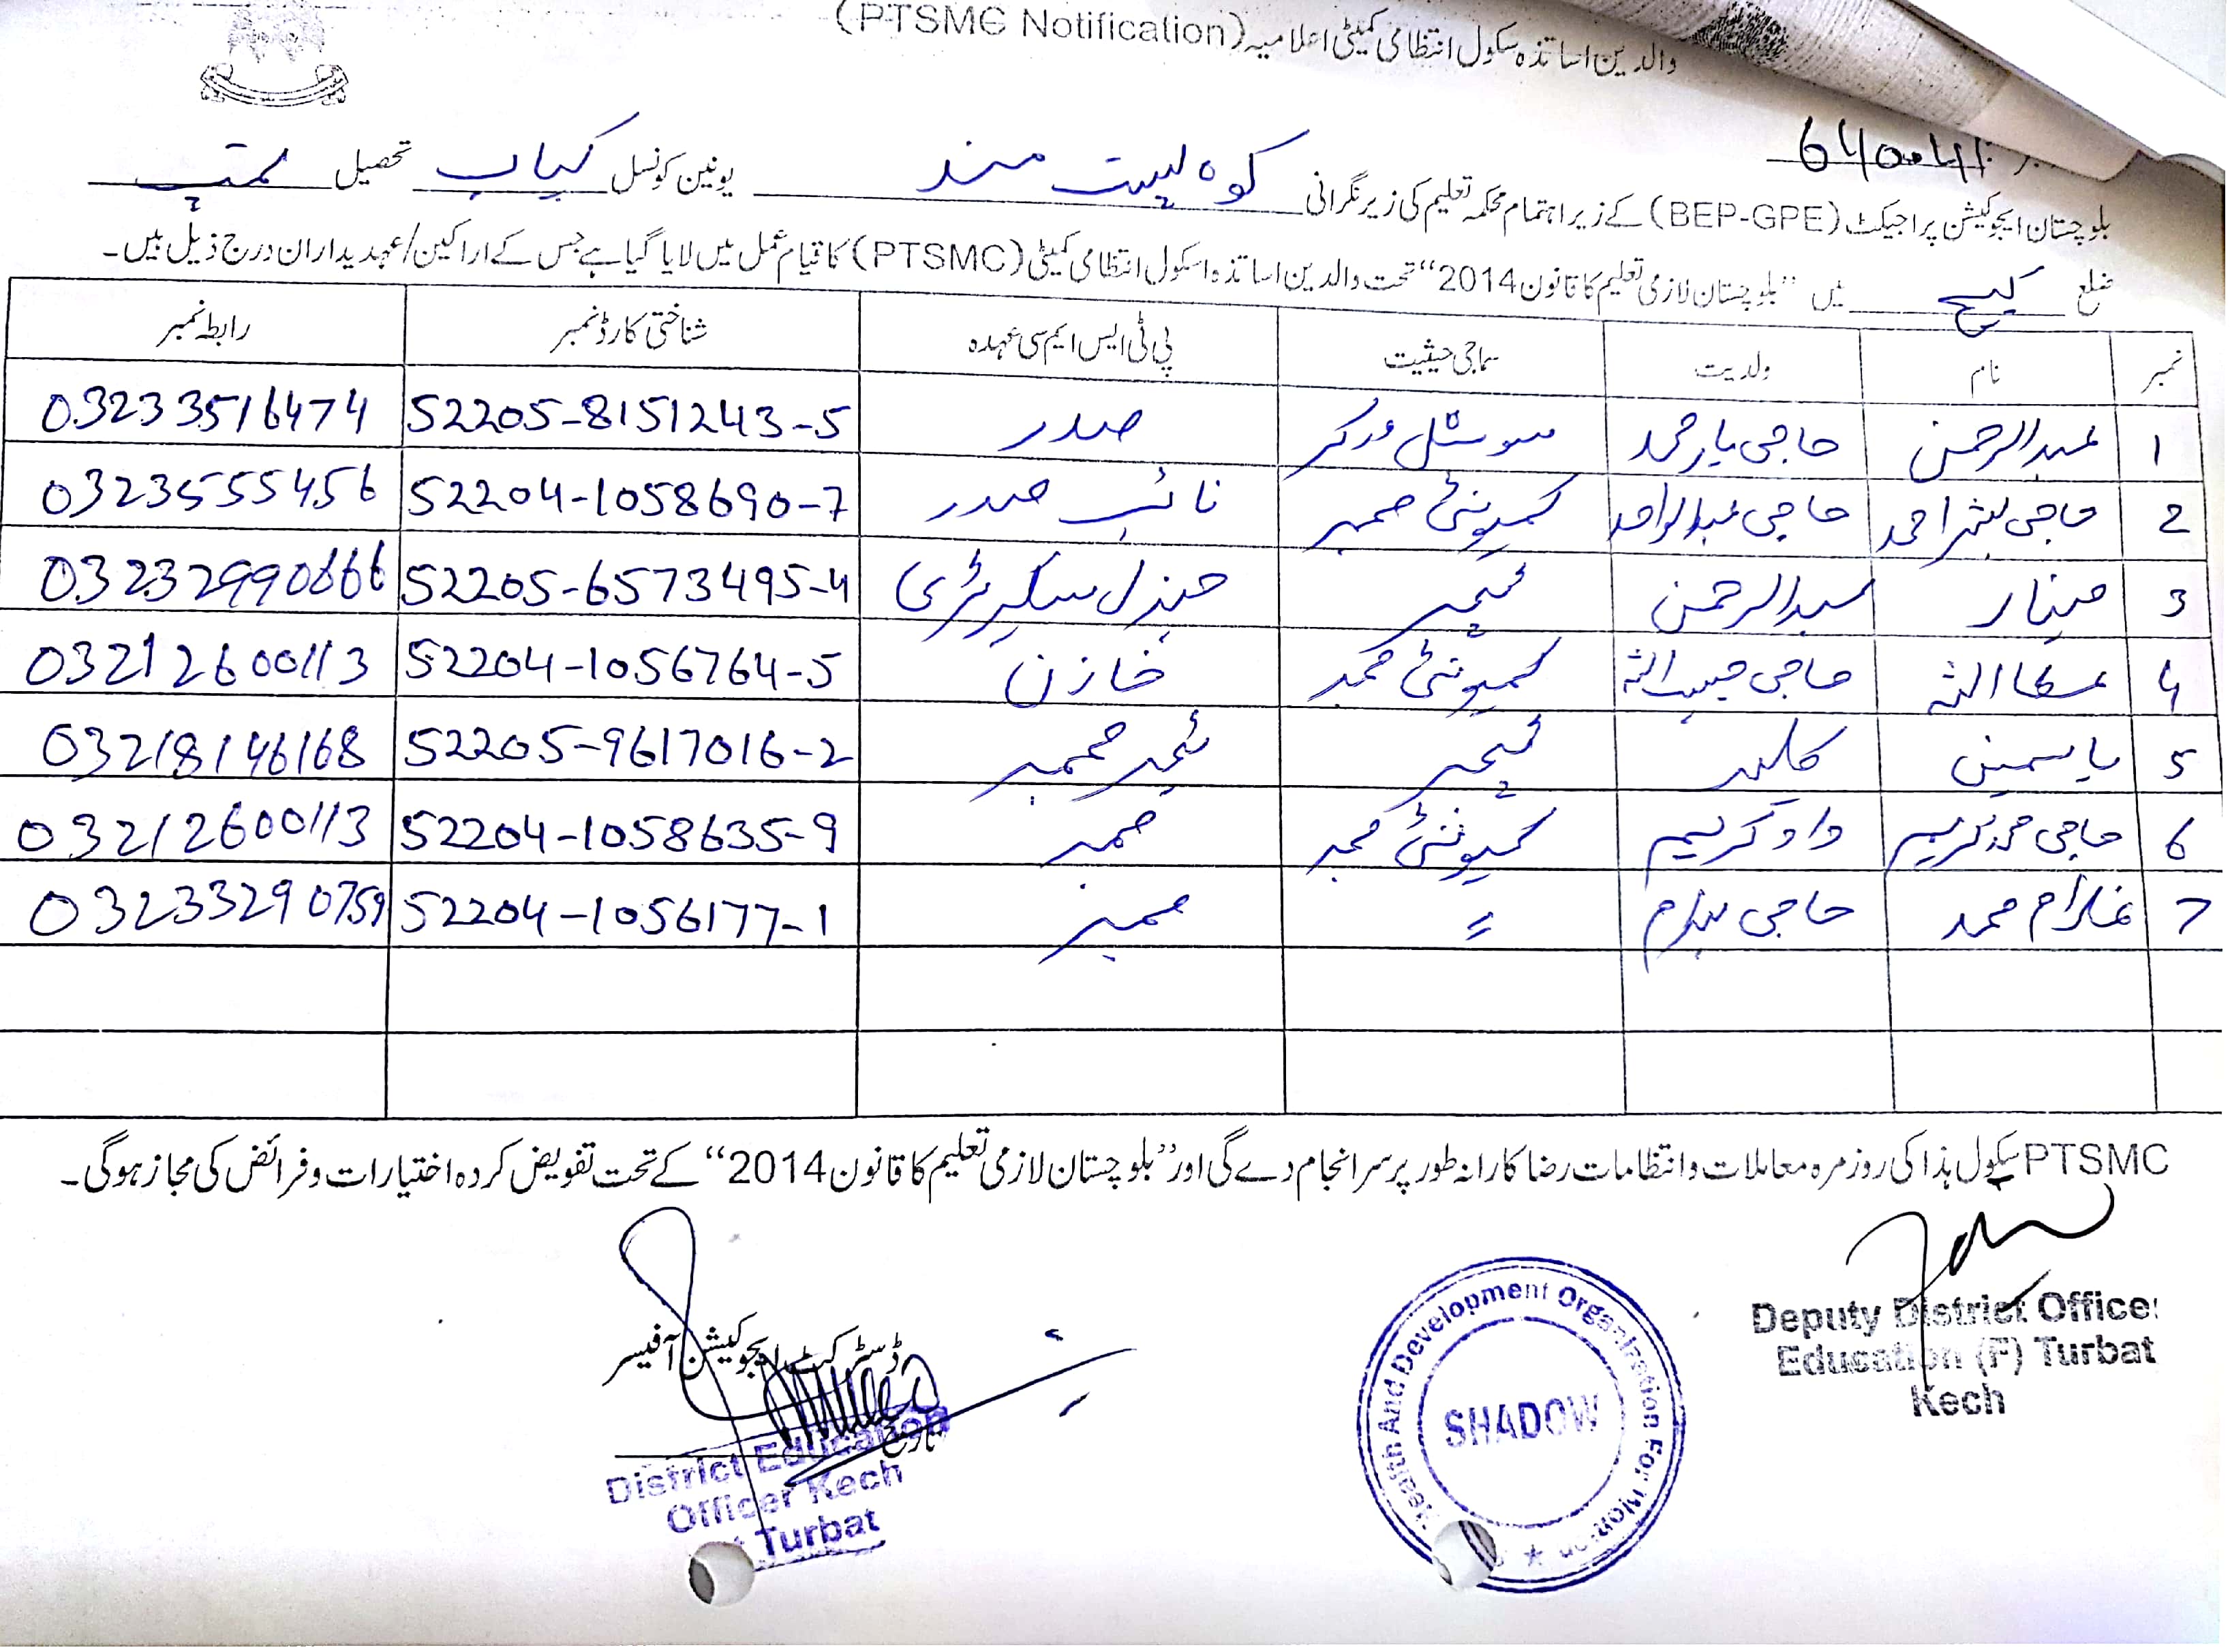 والدین اساتذہ سکول انتظامی کمیٹی اعلامیہ (PTSMC Notification)
بلوچستان ایجوکیشن پراجیکٹ (BEP-GPE) کے زیر اہتمام محکمہ تعلیم کی زیر نگرانی کوہ پشت مند یونین کونسل کہاب تحصیل تمپ
ضلع کیچ میں ”بلوچستان لازمی تعلیم کا قانون 2014“ تحت والدین اساتذہ اسکول انتظامی کمیٹی (PTSMC) کا قیام عمل میں لایا گیا ہے جس کے اراکین/عہدیداران درج ذیل ہیں۔
نمبر نام ولدیت سماجی حیثیت پی ٹی ایس ایم سی عہدہ شناختی کارڈ نمبر رابطہ نمبر
1 عبدالرحمن حاجی یار محمد سوشل ورکر صدر 52205-8151243-5 03233516474
2 حاجی بشیر احمد حاجی عبدالواحد کمیونٹی ممبر نائب صدر 52204-1058690-7 0323555456
3 مینار عبدالرحمن ٹیچر جنرل سکریٹری 52205-6573495-4 03232990666
4 عطا اللہ حاجی حبیب اللہ کمیونٹی ممبر خازن 52204-1056764-5 03212600113
5 یاسمین ٹیچر ٹیچر ممبر 52205-9617016-2 03218146168
6 حاجی محمد کریم داد کریم کمیونٹی ممبر ممبر 52204-1058635-9 03212600113
7 غلام محمد حاجی 〃 ممبر 52204-1056177-1 03233290759
PTSMC سکول ہذا کی روزمرہ معاملات و انتظامات رضا کارانہ طور پر سرانجام دے گی اور ”بلوچستان لازمی تعلیم کا قانون 2014“ کے تحت تفویض کردہ اختیارات و فرائض کی مجاز ہوگی۔
Deputy District Officer
Education (F) Turbat
Kech
Health And Development Organization For
SHADOW
ڈسٹرکٹ ایجوکیشن آفیسر
تاریخ
District Education
Officer Kech
Turbat